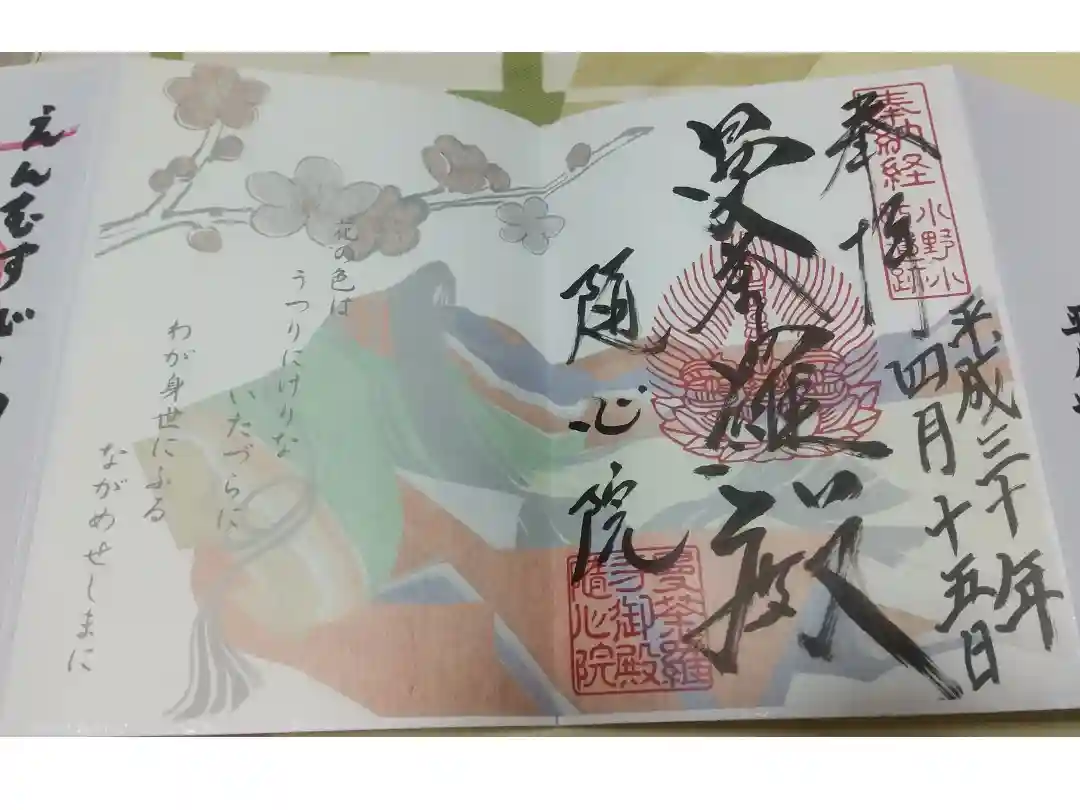 奉拝
奉納経
小野小
町遺跡
平成三十年
四月十五日
曼荼羅殿
随心院
曼荼羅
寺御殿
隨心院
花の色は
うつりにけりな
いたづらに
わが身世にふる
ながめせしまに
えんむすび